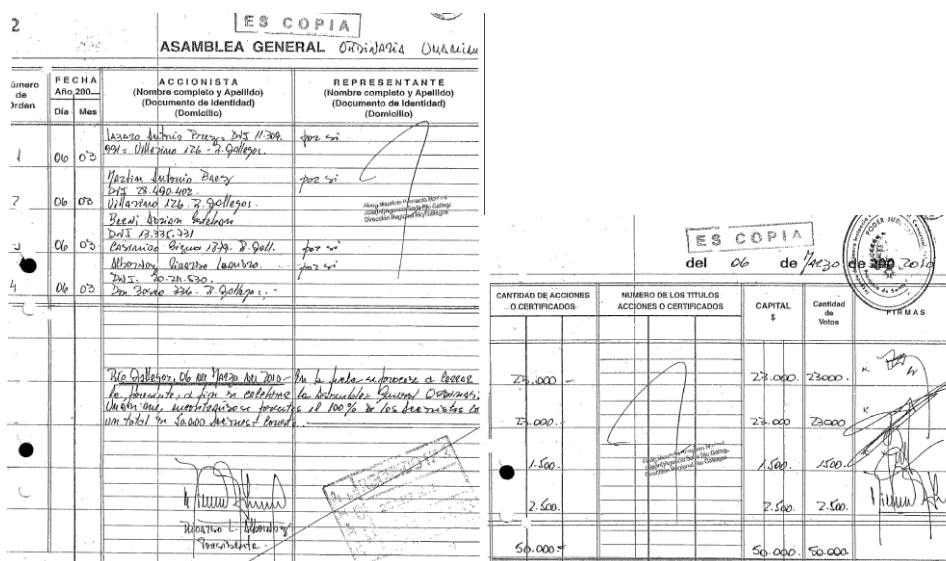 2
ES COPIA
ASAMBLEA GENERAL ORDINARIA UNANIM
úmero de Orden
FECHA
Año 200
Día Mes
ACCIONISTA
(Nombre completo y Apellido)
(Documento de Identidad)
(Domicilio)
REPRESENTANTE
(Nombre completo y Apellido)
(Documento de Identidad)
(Domicilio)
Lazaro Antonio Baez DNI 11.309.
991 = Villarino 126 - R. Gallegos.
por si
1 06 03
Martin Antonio Baez
por si
DNI 28.490.402.
2 06 03 Villarino 126. R. Gallegos.
DNI 13.335.731
3 06 03 por si
Albornoz
por si
DNI. 20.211.530.
4 06 03 336. R. Gallegos.
Rio Gallegos, 06 de Marzo de 2010 - En la fecha se procede a cerrar
la presente, a fin de celebrar la Asamblea General Ordinaria
Unanime, encontrandose presentes el 100% de los Accionistas
un total de 50.000
L. Albornoz
Presidente
ES COPIA
del 06 de Marzo de 200 2010
CANTIDAD DE ACCIONES O CERTIFICADOS
NUMERO DE LOS TITULOS ACCIONES O CERTIFICADOS
CAPITAL $
Cantidad de Votos
FIRMAS
23.000 23.000. 23000.
23.000. 23.000 23000
1.500. 1.500. 1500.
2.500. 2.500. 2.500.
50.000 50.000. 50.000.